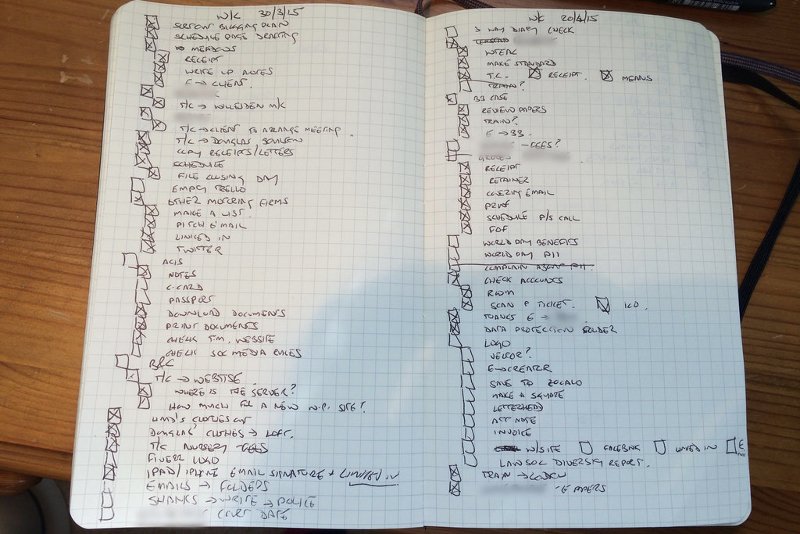 W/C 30/3/15
SERTON BLOGGING PLAN
SCHEDULE PAGE DRAFTING
MEADOWS
RECEIPT
WRITE UP NOTES
E → CLIENT.
T/C → WILLESDEN M/C
T/C → CLIENT TO ARRANGE MEETING.
T/C → DOUGLAS
COPY RECEIPTS/LETTERS
SCHEDULE
FILE CLOSING DAY
EMPTY TRELLO
OTHER MOTORING FIRMS
MAKE A LIST.
PITCH EMAIL
LINKED IN
TWITTER
ACIS
NOTES
C.CARD
PASSPORT
DOWNLOAD DOCUMENTS
PRINT DOCUMENTS
CHECK T.M. WEBSITE
CHECK SOC MEDIA RULES
T/C → WEBSITE.
WHERE IS THE SERVER?
HOW MUCH FOR A NEW W.P. SITE?
CLOTHES OUT
DOUGLAS CLOTHES → LOFT.
T/C NURSERY FEES
FIVERR LOGO
IPAD/IPHONE EMAIL SIGNATURE + LINKED IN
EMAILS → FOLDERS
SHANKS → WRITE → POLICE
COURT DATE
W/C 20/4/15
3 WAY DIARY CHECK
INTERL
MAKE STANDARD
T.C. RECEIPT. MEANS
TRAIN?
B3 CASE
REVIEW PAPERS
TRAIN?
E → B3.
- FEES?
RECEIPT
RETAINER
COVERING EMAIL
PRINT
SCHEDULE P/S CALL
FOF
WORLD DAY BENEFITS
WORLD DAY PII
COMPLAIN ABOUT PII.
CHECK ACCOUNTS
ROOM
SCAN P TICKET. ICO.
THANKS E →
DATA PROTECTION FOLDER
LOGO
VECTOR?
E → CREATOR
SAVE TO ZOCALO
MAKE A SQUARE
LETTERHEAD
ATT NOTE
INVOICE
W/SITE FACEBOOK LINKED IN E
LAW SOC DIVERSITY REPORT.
TRAIN → LONDON
- E PAPERS